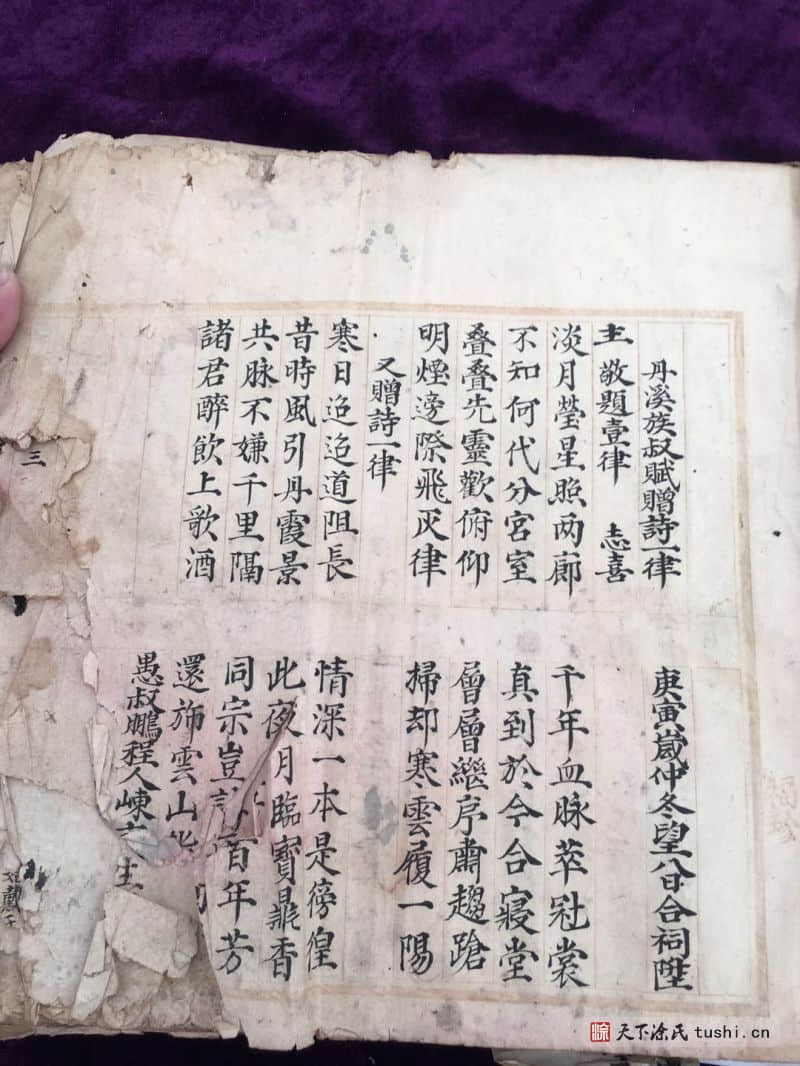 丹溪族叔賦贈詩一律 庚寅歲仲冬望八日合祠陞
主 敬題壹律 志喜
淡月瑩星照两廊 千年血脉萃冠裳
不知何代分宮室 真到於今合寢堂
叠叠先靈歡俯仰 層層繼序肅趨蹌
明煙滂際飛灰律 掃却寒雲履一陽
又贈詩一律
寒日迢迢道阻長 情深一本是徬徨
昔時風引丹霞景 此夜月臨寶鼎香
共脉不嫌千里隔 同宗豈 百年芳
諸君醉飲上歌酒 還施雲山
愚叔鵬程人崠
三
天下涂氏 tushi.cn